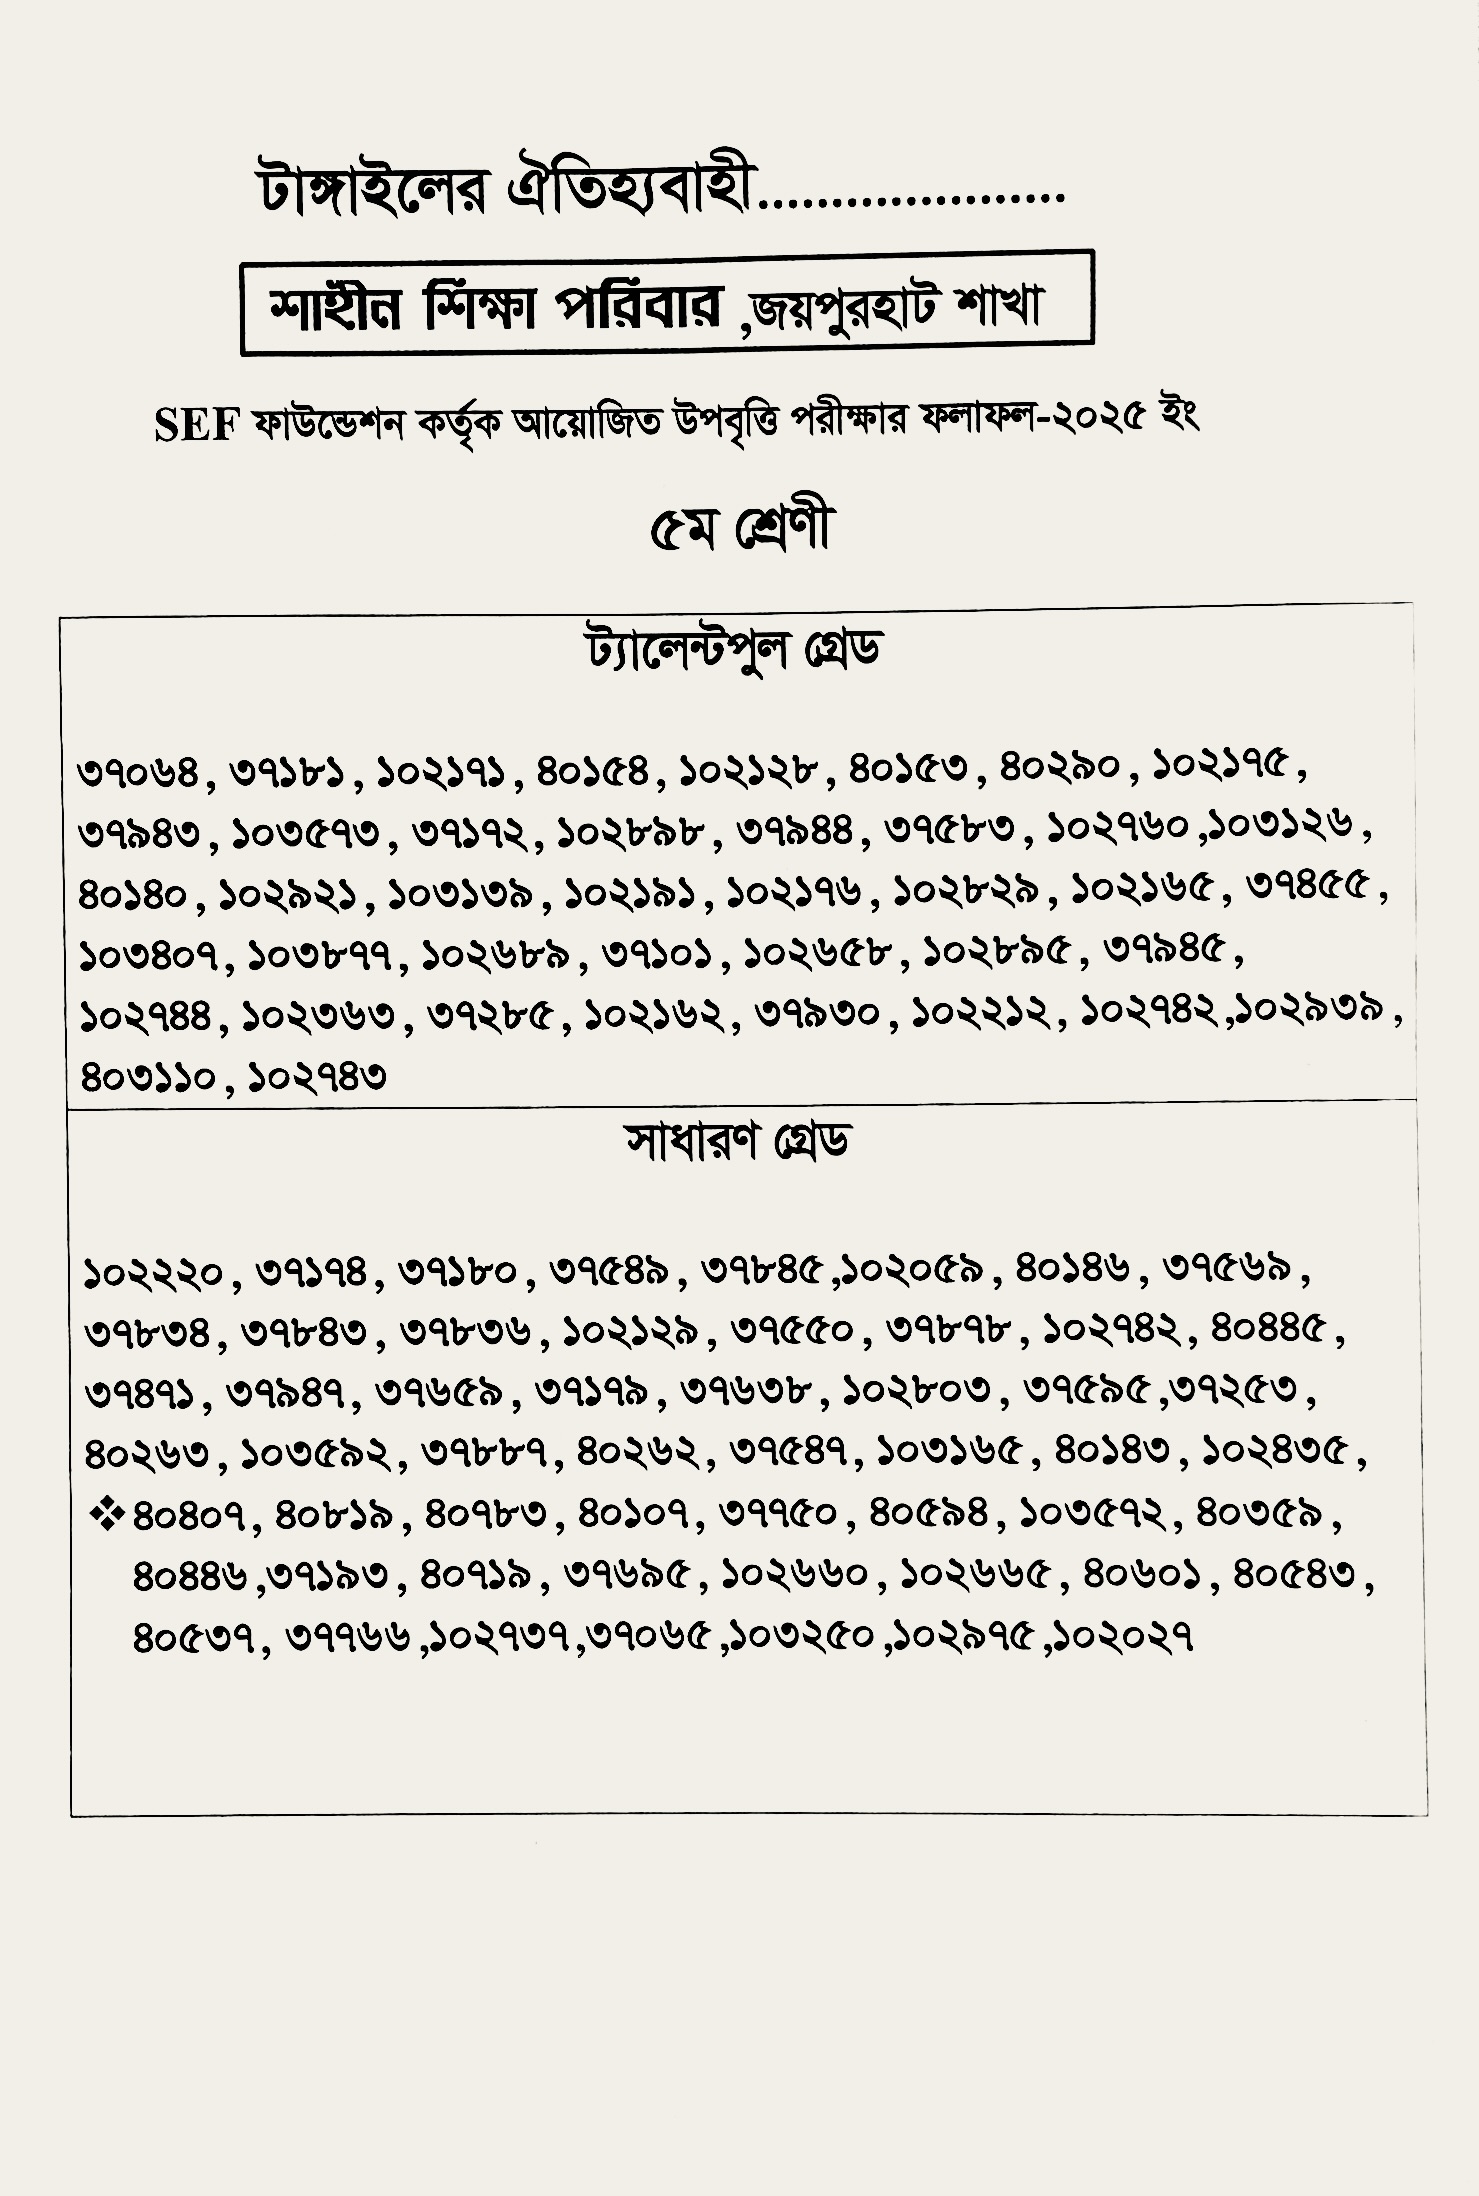 টাঙ্গাইলের ঐতিহ্যবাহী.....................
শাহীন শিক্ষা পরিবার ,জয়পুরহাট শাখা
SEF ফাউন্ডেশন কর্তৃক আয়োজিত উপবৃত্তি পরীক্ষার ফলাফল-২০২৫ ইং
৫ম শ্রেণী
ট্যালেন্টপুল গ্রেড
৩৭০৬৪, ৩৭১৮১, ১০২১৭১, ৪০১৫৪, ১০২১২৮, ৪০১৫৩, ৪০২৯০, ১০২১৭৫,
৩৭৯৪৩, ১০৩৫৭৩, ৩৭১৭২, ১০২৮৯৮, ৩৭৯৪৪, ৩৭৫৮৩, ১০২৭৬০,১০৩১২৬,
৪০১৪০, ১০২৯২১, ১০৩১৩৯, ১০২১৯১, ১০২১৭৬, ১০২৮২৯, ১০২১৬৫, ৩৭৪৫৫,
১০৩৪০৭, ১০৩৮৭৭, ১০২৬৮৯, ৩৭১০১, ১০২৬৫৮, ১০২৮৯৫, ৩৭৯৪৫,
১০২৭৪৪, ১০২৩৬৩, ৩৭২৮৫, ১০২১৬২, ৩৭৯৩০, ১০২২১২, ১০২৭৪২,১০২৯৩৯,
৪০৩১১০, ১০২৭৪৩
সাধারণ গ্রেড
১০২২২০, ৩৭১৭৪, ৩৭১৮০, ৩৭৫৪৯, ৩৭৮৪৫,১০২০৫৯, ৪০১৪৬, ৩৭৫৬৯,
৩৭৮৩৪, ৩৭৮৪৩, ৩৭৮৩৬, ১০২১২৯, ৩৭৫৫০, ৩৭৮৭৮, ১০২৭৪২, ৪০৪৪৫,
৩৭৪৭১, ৩৭৯৪৭, ৩৭৬৫৯, ৩৭১৭৯, ৩৭৬৩৮, ১০২৮০৩, ৩৭৫৯৫,৩৭২৫৩,
৪০২৬৩, ১০৩৫৯২, ৩৭৮৮৭, ৪০২৬২, ৩৭৫৪৭, ১০৩১৬৫, ৪০১৪৩, ১০২৪৩৫,
❖৪০৪০৭, ৪০৮১৯, ৪০৭৮৩, ৪০১০৭, ৩৭৭৫০, ৪০৫৯৪, ১০৩৫৭২, ৪০৩৫৯,
৪০৪৪৬,৩৭১৯৩, ৪০৭১৯, ৩৭৬৯৫, ১০২৬৬০, ১০২৬৬৫, ৪০৬০১, ৪০৫৪৩,
৪০৫৩৭, ৩৭৭৬৬,১০২৭৩৭,৩৭০৬৫,১০৩২৫০,১০২৯৭৫,১০২০২৭